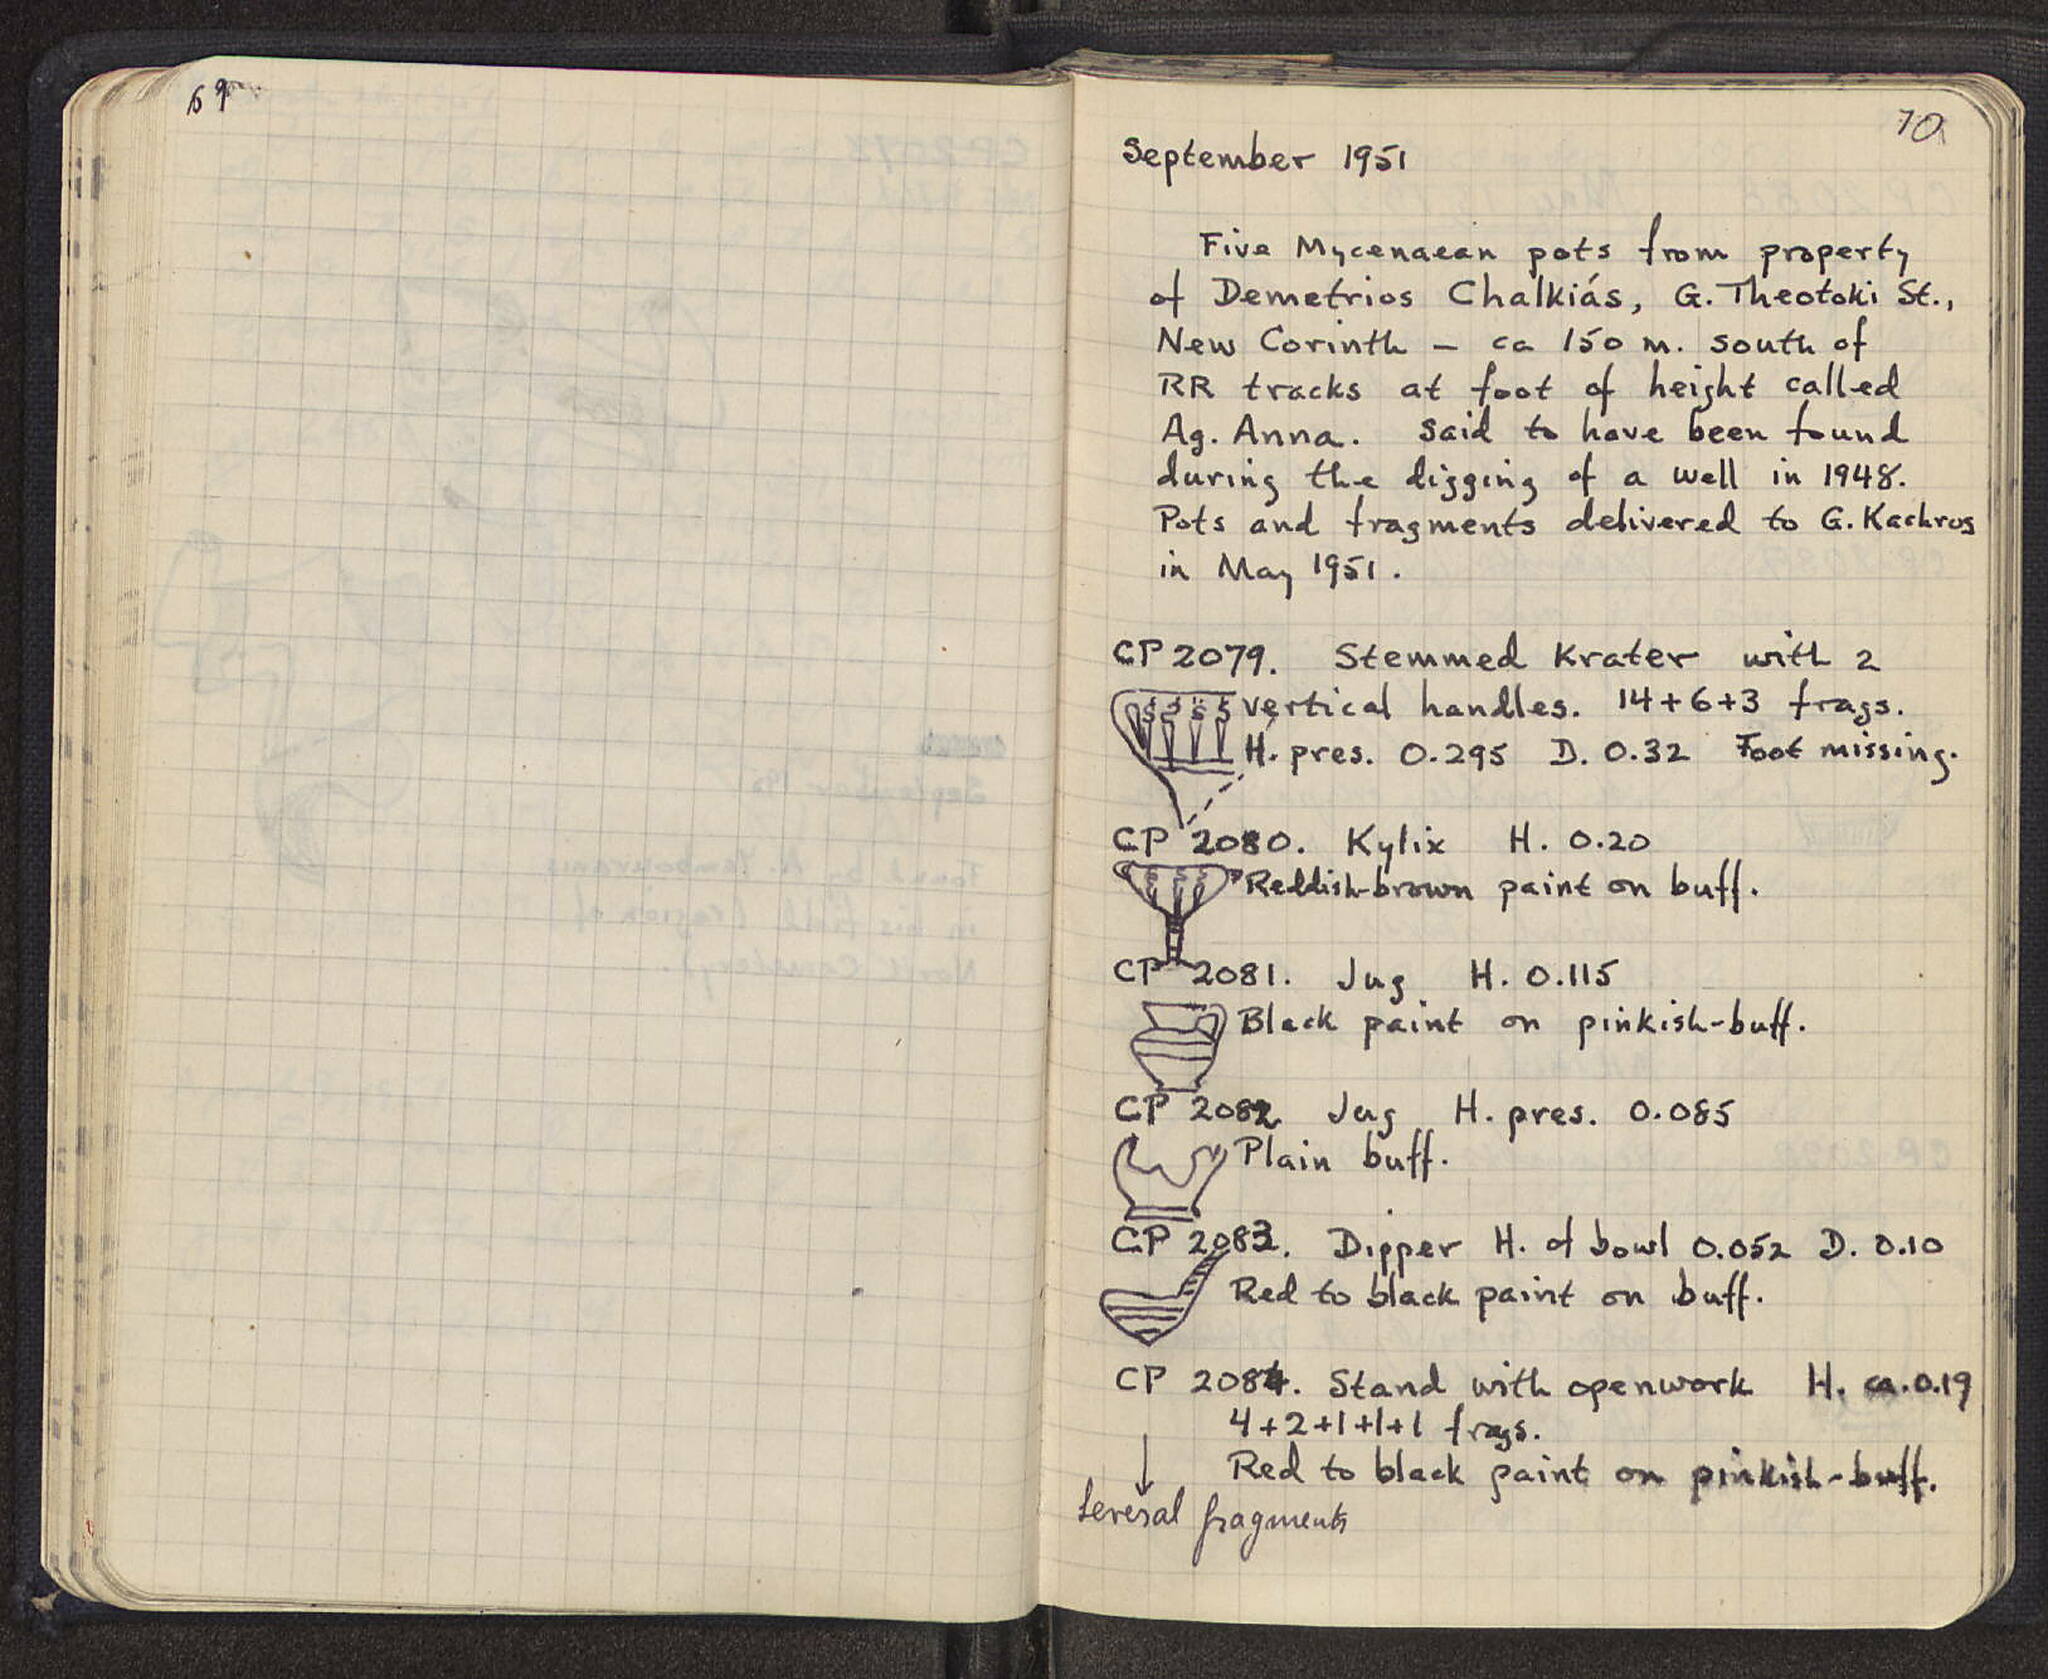 69
70
September 1951
Five Mycenaean pots from property
of Demetrios Chalkiás, G. Theotoki St.,
New Corinth – ca 150 m. south of
RR tracks at foot of height called
Ag. Anna. Said to have been found
during the digging of a well in 1948.
Pots and fragments delivered to G. Kachros
in May 1951.
CP 2079. Stemmed Krater with 2
vertical handles. 14+6+3 frags.
H. pres. 0.295 D. 0.32 Foot missing.
CP 2080. Kylix H. 0.20
Reddish-brown paint on buff.
CP 2081. Jug H. 0.115
Black paint on pinkish-buff.
CP 2082 Jug H. pres. 0.085
Plain buff.
CP 2083. Dipper H. of bowl 0.052 D. 0.10
Red to black paint on buff.
CP 2084. Stand with openwork H. ca. 0.19
4+2+1+1+1 frags.
Red to black paint on pinkish-buff.
Several fragments